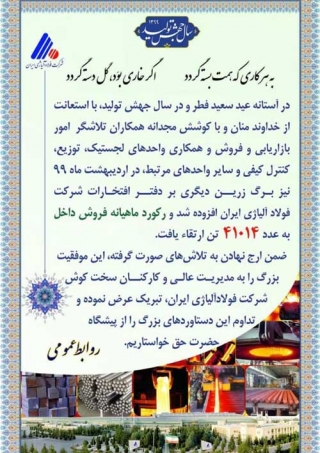 سال جهش تولید
۱۳۹۹
شرکت فولاد آلیاژی ایران
به هر کاری که همت بسته گردد اگر خاری بود، گل دسته گردد
در آستانه عید سعید فطر و در سال جهش تولید، با استعانت
از خداوند منان و با کوشش مجدانه همکاران تلاشگر امور
بازاریابی و فروش و همکاری واحدهای لجستیک، توزیع،
کنترل کیفی و سایر واحدهای مرتبط، در اردیبهشت ماه ۹۹
نیز برگ زرین دیگری بر دفتر افتخارات شرکت
فولاد آلیاژی ایران افزوده شد و رکورد ماهیانه فروش داخل
به عدد ۴۱۰۱۴ تن ارتقاء یافت.
ضمن ارج نهادن به تلاش‌های صورت گرفته، این موفقیت
بزرگ را به مدیریت عالی و کارکنان سخت کوش
شرکت فولادآلیاژی ایران، تبریک عرض نموده و
تداوم این دستاوردهای بزرگ را از پیشگاه
حضرت حق خواستاریم.
روابط عمومی